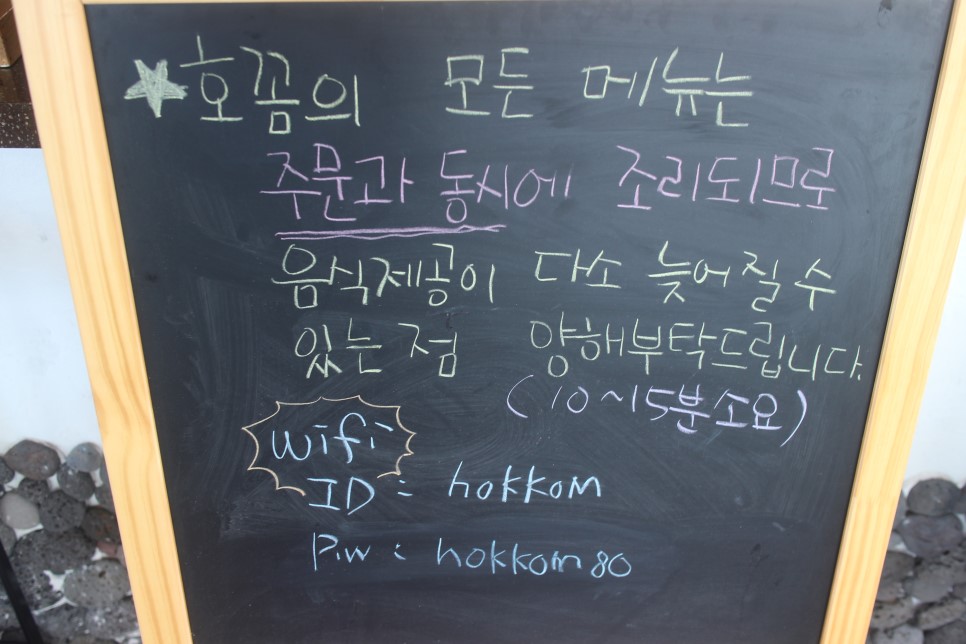 ★호꼼의 모든 메뉴는
주문과 동시에 조리되므로
음식제공이 다소 늦어질 수
있는 점 양해부탁드립니다.
(10~15분소요)
wifi
ID : hokkom
P.w : hokkom80